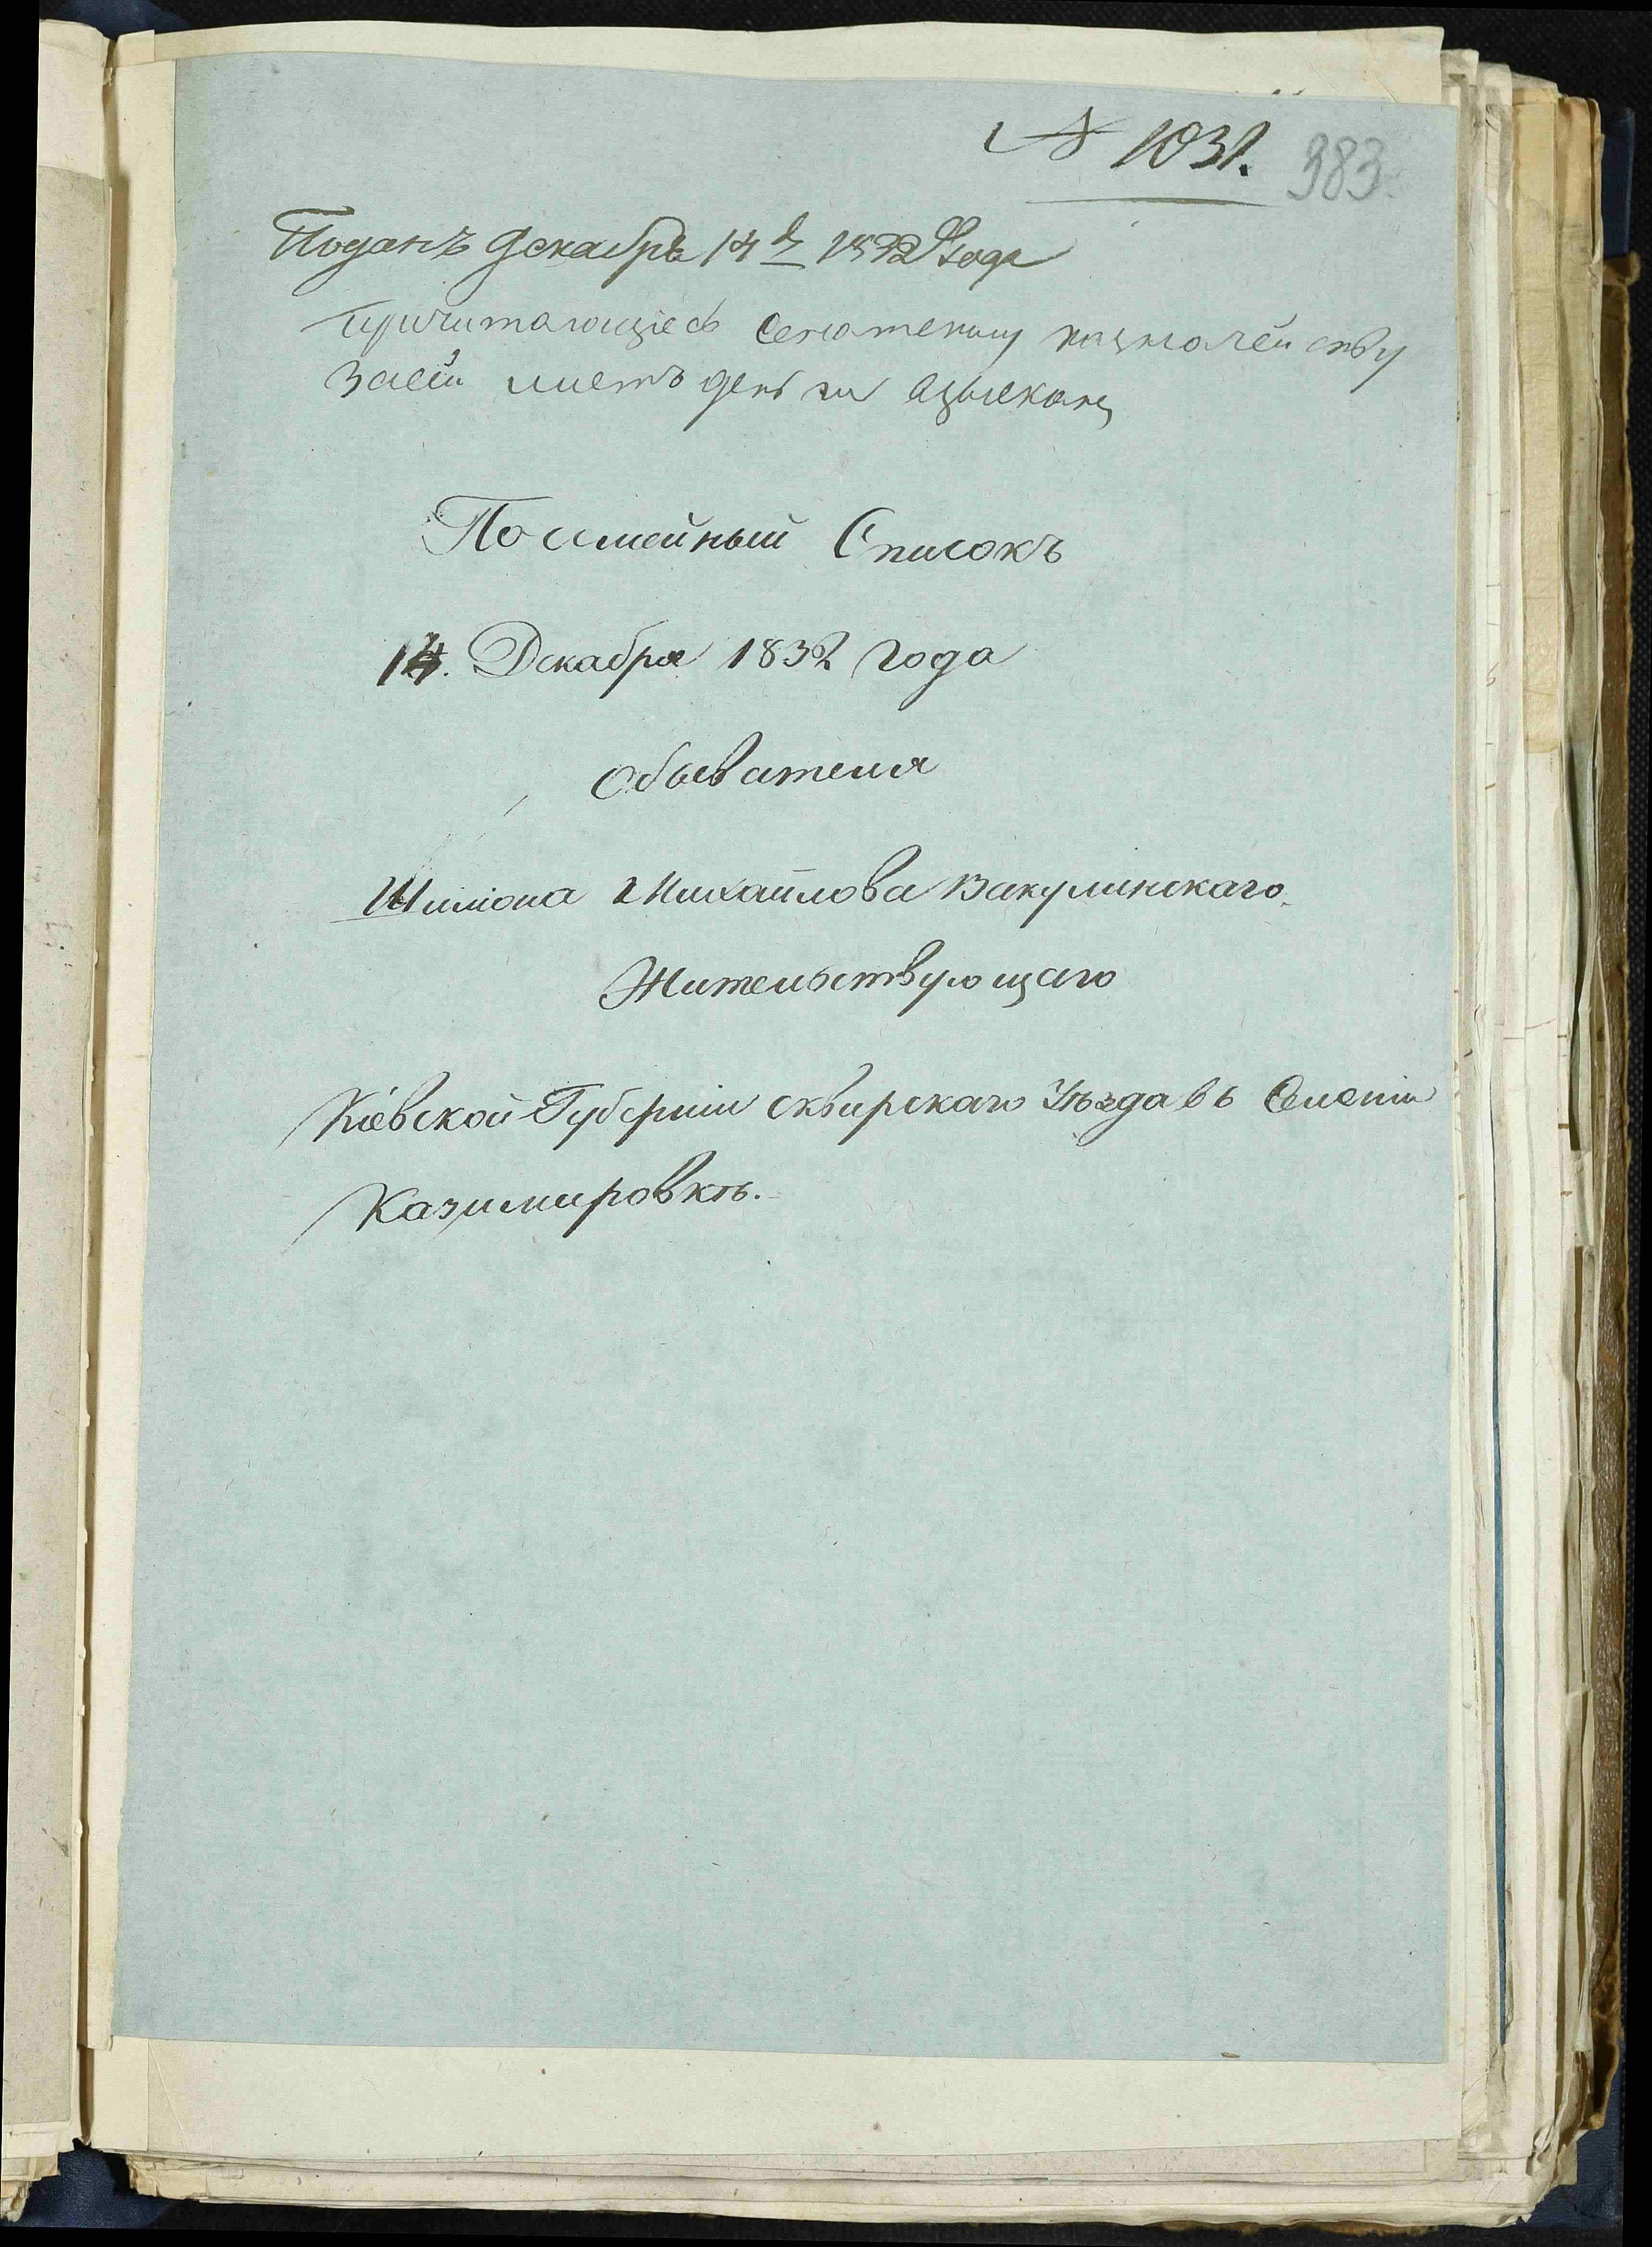 № 1031. 383.
Поданъ Декабря 14 д 1832 года
причитающіесь казначейству
за сей листъ деньги взысканы
Посемейный Списокъ
14. Декабря 1832 года
Обывателя
Шимона Михайлова Вакулинскаго.
Жительствующаго
Кіевской Губерніи сквирскаго Уѣзда въ Селеніи
Казимировкѣ.